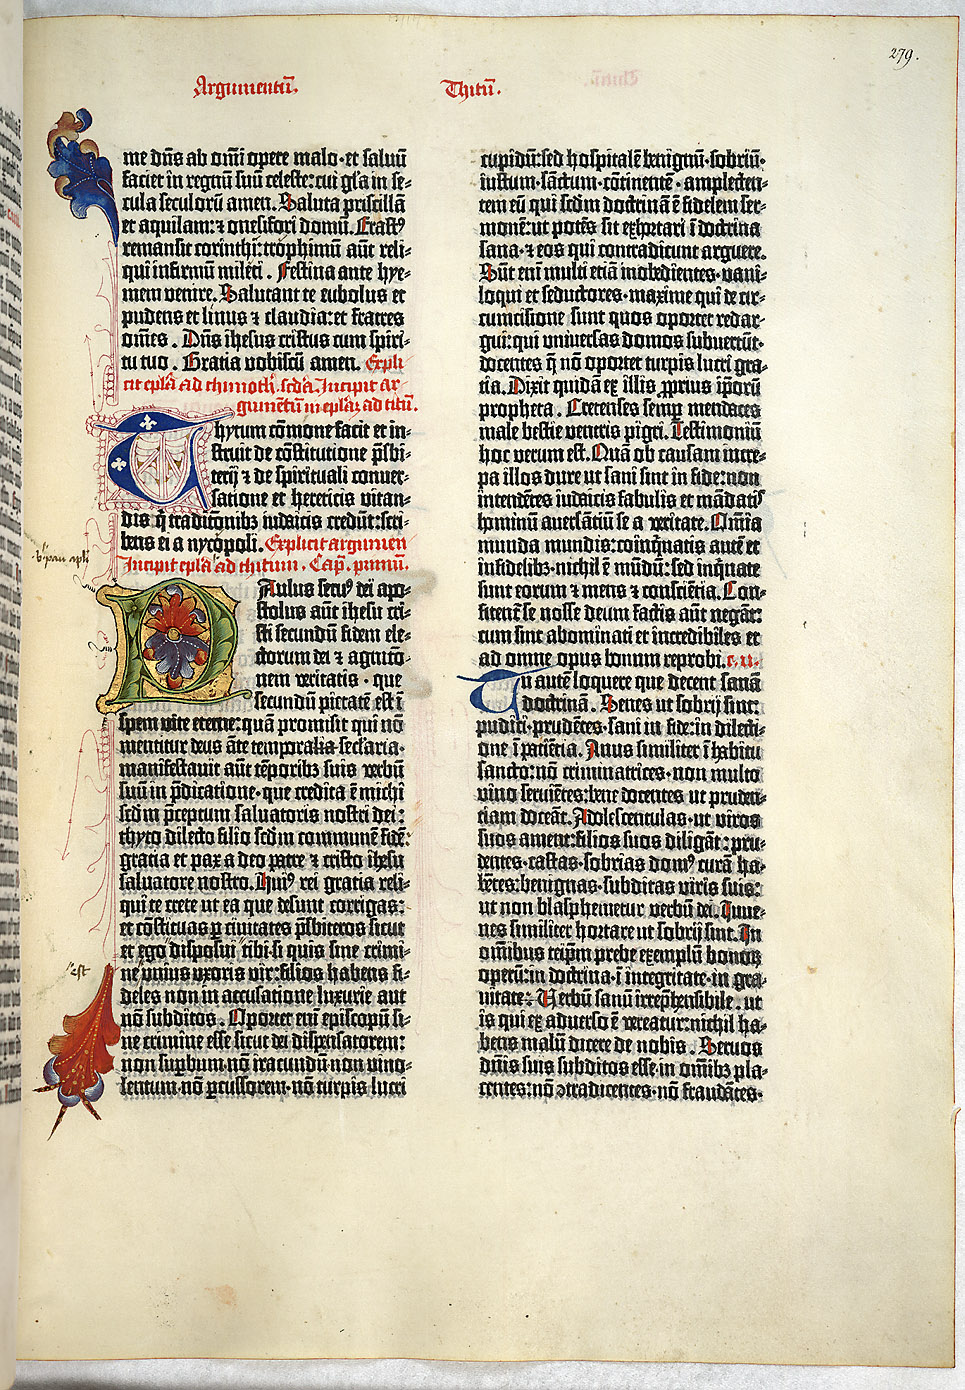 279.
Argumentū. Thitū.
me dn̄s ab om̄i opere malo·et saluū
faciet in regnū suū celeste: cui gl̄a in se-
cula seculorū amen. Saluta priscillā
et aquilam: ⁊ onesifori domū. Erastꝰ
remansit corinthi: trophimū aūt reli-
qui infirmū mileti. Festina ante hye-
mem venire. Salutant te eubolus et
pudens et linus ⁊ claudia: et fratres
om̄es. Dn̄s ih̄esus cristus cum spiri-
tu tuo. Gratia vobiscū amen. Expli
cit ep̄la ad thimoth̄. sc̄da. Incipit ar
gumentū in ep̄laꝫ ad titū.
Thytum cōmonefacit et in-
struit de cōstitutione p̄sbi-
terij ⁊ de spirituali conuer-
satione et hereticis vitan-
dis q̄ traditōnibꝫ iudaicis credūt: scri-
bens ei a nycopoli. Explicit argumen
Incipit ep̄la ad thitum. Cap̄. primū.
Paulus seruꝰ dei apo-
stolus aūt ih̄esu cri-
sti secundū fidem ele-
ctorum dei ⁊ agnitō-
nem veritatis·que
secundū pietatē est ī
spem vite eterne: quā promisit qui nō
mentitur deus āte temporalia secl̄aria·
manifestauit aūt tēporibꝫ suis verbū
suū in p̄dicatione·que credita ē michi
scd̄m p̄ceptum saluatoris nostri dei:
thyto dilecto filio scd̄m communē fidē:
gratia et pax a deo patre ⁊ cristo ih̄esu
saluatore nostro. Huiꝰ rei gratia reli-
qui te crete ut ea que desunt corrigas:
et cōstituas ꝑ ciuitates p̄sbiteros sicut
et ego disposui tibi·si quis sine crimi-
est
ne vnius vxoris vir: filios habens fi-
deles non in accusatione luxurie aut
nō subditos. Oportet enī episcopū si-
ne crimine esse sicut dei dispensatorem:
non suꝑbum·nō iracundū·non vino-
lentum·nō ꝑcussorem·nō turpis lucri
cupidū: sed hospitalē benignū·sobriū·
iustum·sāctum·cōtinentē·amplecten-
tem eū qui scd̄m doctrinā ē fidelem ser-
monē: ut potēs sit exhortari ī doctrina
sana·⁊ eos qui contradicunt arguere.
Sūt enī multi etiā inobedientes·vani-
loqui et seductores·maxime qui de cir-
cumcisione sunt quos oportet redar-
gui: qui vniuersas domos subuertūt·
docentes q̄ nō oportet turpis lucri gra-
tia. Dixit quidā ex illis ꝓprius ip̄orū
propheta. Cretenses semꝑ mendaces
male bestie ventris pigri. Testimoniū
hoc verum est. Quā ob causam incre-
pa illos dure ut sani sint in fide: non
intendētes iudaicis fabulis et mādatis
hominū auersātiū se a veritate. Om̄ia
munda mundis: coinq̄natis autē et
infidelibꝫ·nichil ē mūdū: sed inq̄nate
sunt eorum ⁊ mens ⁊ consciētia. Con-
fitent̄ se nosse deum factis aūt negāt:
cum sint abominati et incredibiles et
ad omne opus bonum reprobi. c. ii.
Tu autē loquere que decent sanā
doctrinā. Senes ut sobrij sint:
pudici·prudētes·sani in fide: in dilecti-
one ī patiētia. Anus similiter ī habitu
sancto: nō criminatrices·non multo
vino seruiētes: bene docentes ut pruden-
tiam doceāt. Adolescentulas·ut viros
suos ament: filios suos diligāt: pru-
dentes·castas·sobrias domꝰ curā ha-
bētes: benignas·subditas viris suis:
ut non blasphemetur verbū dei. Iuue-
nes similiter hortare ut sobrij sint. In
om̄ibus teip̄m prebe exemplū bonoꝝ
operū: in doctrina·ī integritate·in gra-
uitate: Verbū sanū irrep̄hensibile·ut
is qui ex aduerso ē vereatur: nichil ha-
bens malū dicere de nobis. Seruos
dn̄is suis subditos esse·in om̄ibꝫ pla-
centes: nō ↄtradicentes·nō fraudātes·